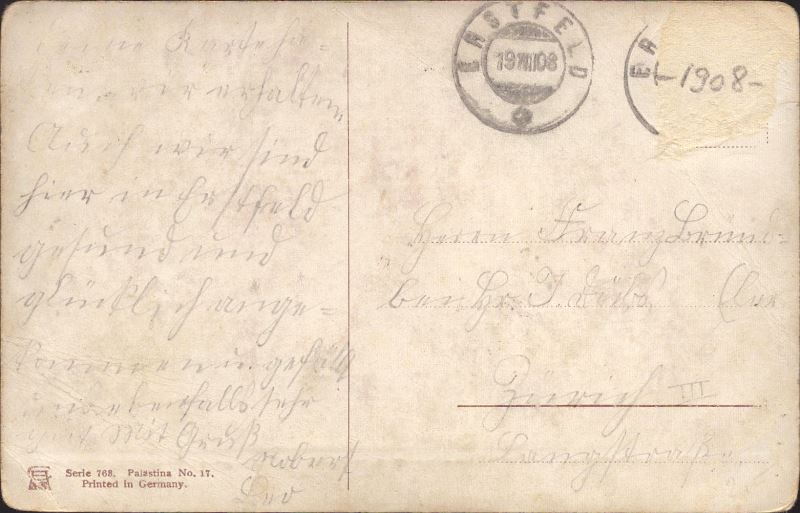 Deine Karte ha-
wir erhalten
Auch wir sind
hier in Erstfeld
gesund und
glücklich ange-
kommen u. gefällt
uns ebenfalls sehr
gut. Mit Gruß
Robert
Leo
ERSTFELD
19 VII 08
ER
-1908-
Herrn Franz Bründ-
bei Hr. J.
Zürich III
Langstraße
Serie 768. Palästina No. 17.
Printed in Germany.